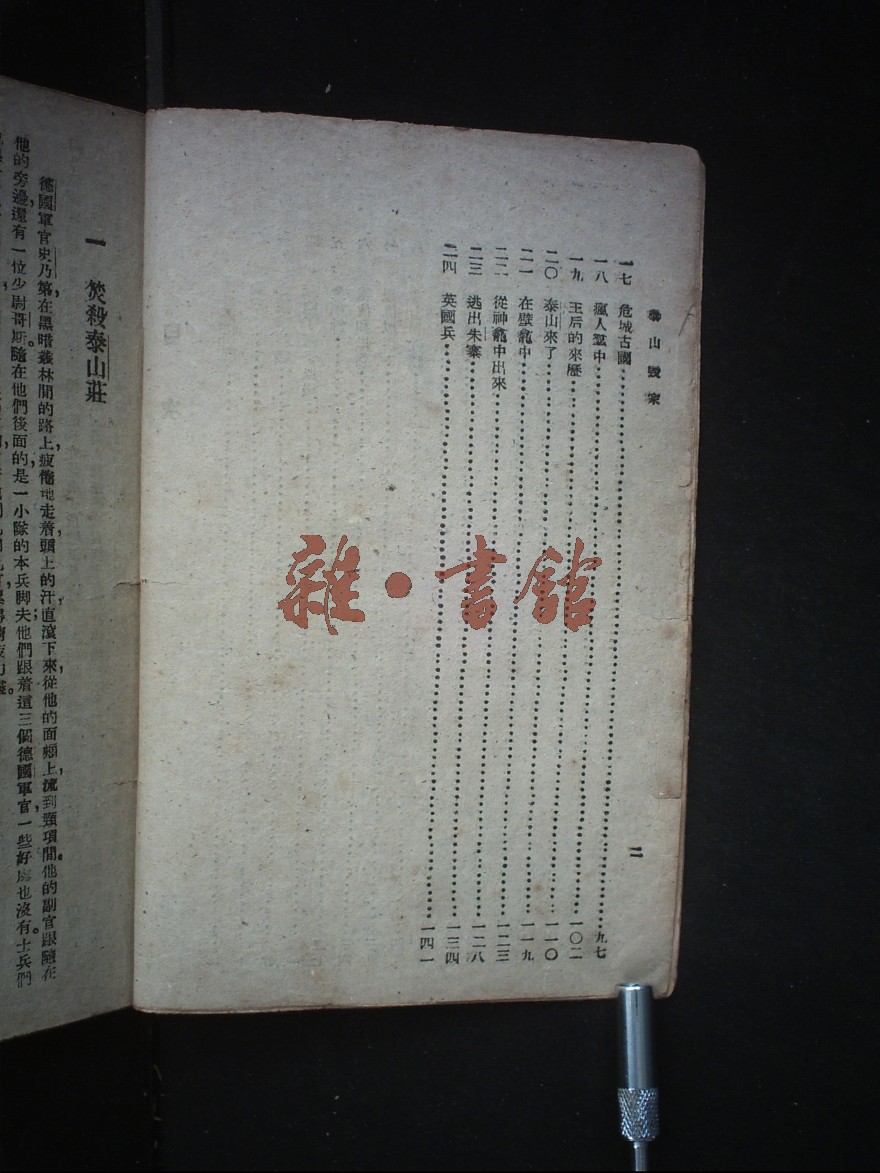 泰山毀家
一七 危城古國……九七
一八 瘋人羣中……一〇二
一九 王后的來歷……一一〇
二〇 泰山來了……一一九
二一 在壁龕中……一二三
二二 從神龕中出來……一二八
二三 逃出朱寨……一三四
二四 英國兵……一四一
二
雜·書館
一 焚殺泰山莊
德國軍官史乃第在黑暗叢林間的路上，疲憊地走着，頭上的汗，直滾下來，從他的面頰上，流到頸項間。他的副官跟隨在
他的旁邊，還有一位少尉哥斯。隨在他們後面的，是一小隊的本兵；脚夫他們跟着這三個德國軍官，一些好處也沒有。士兵們